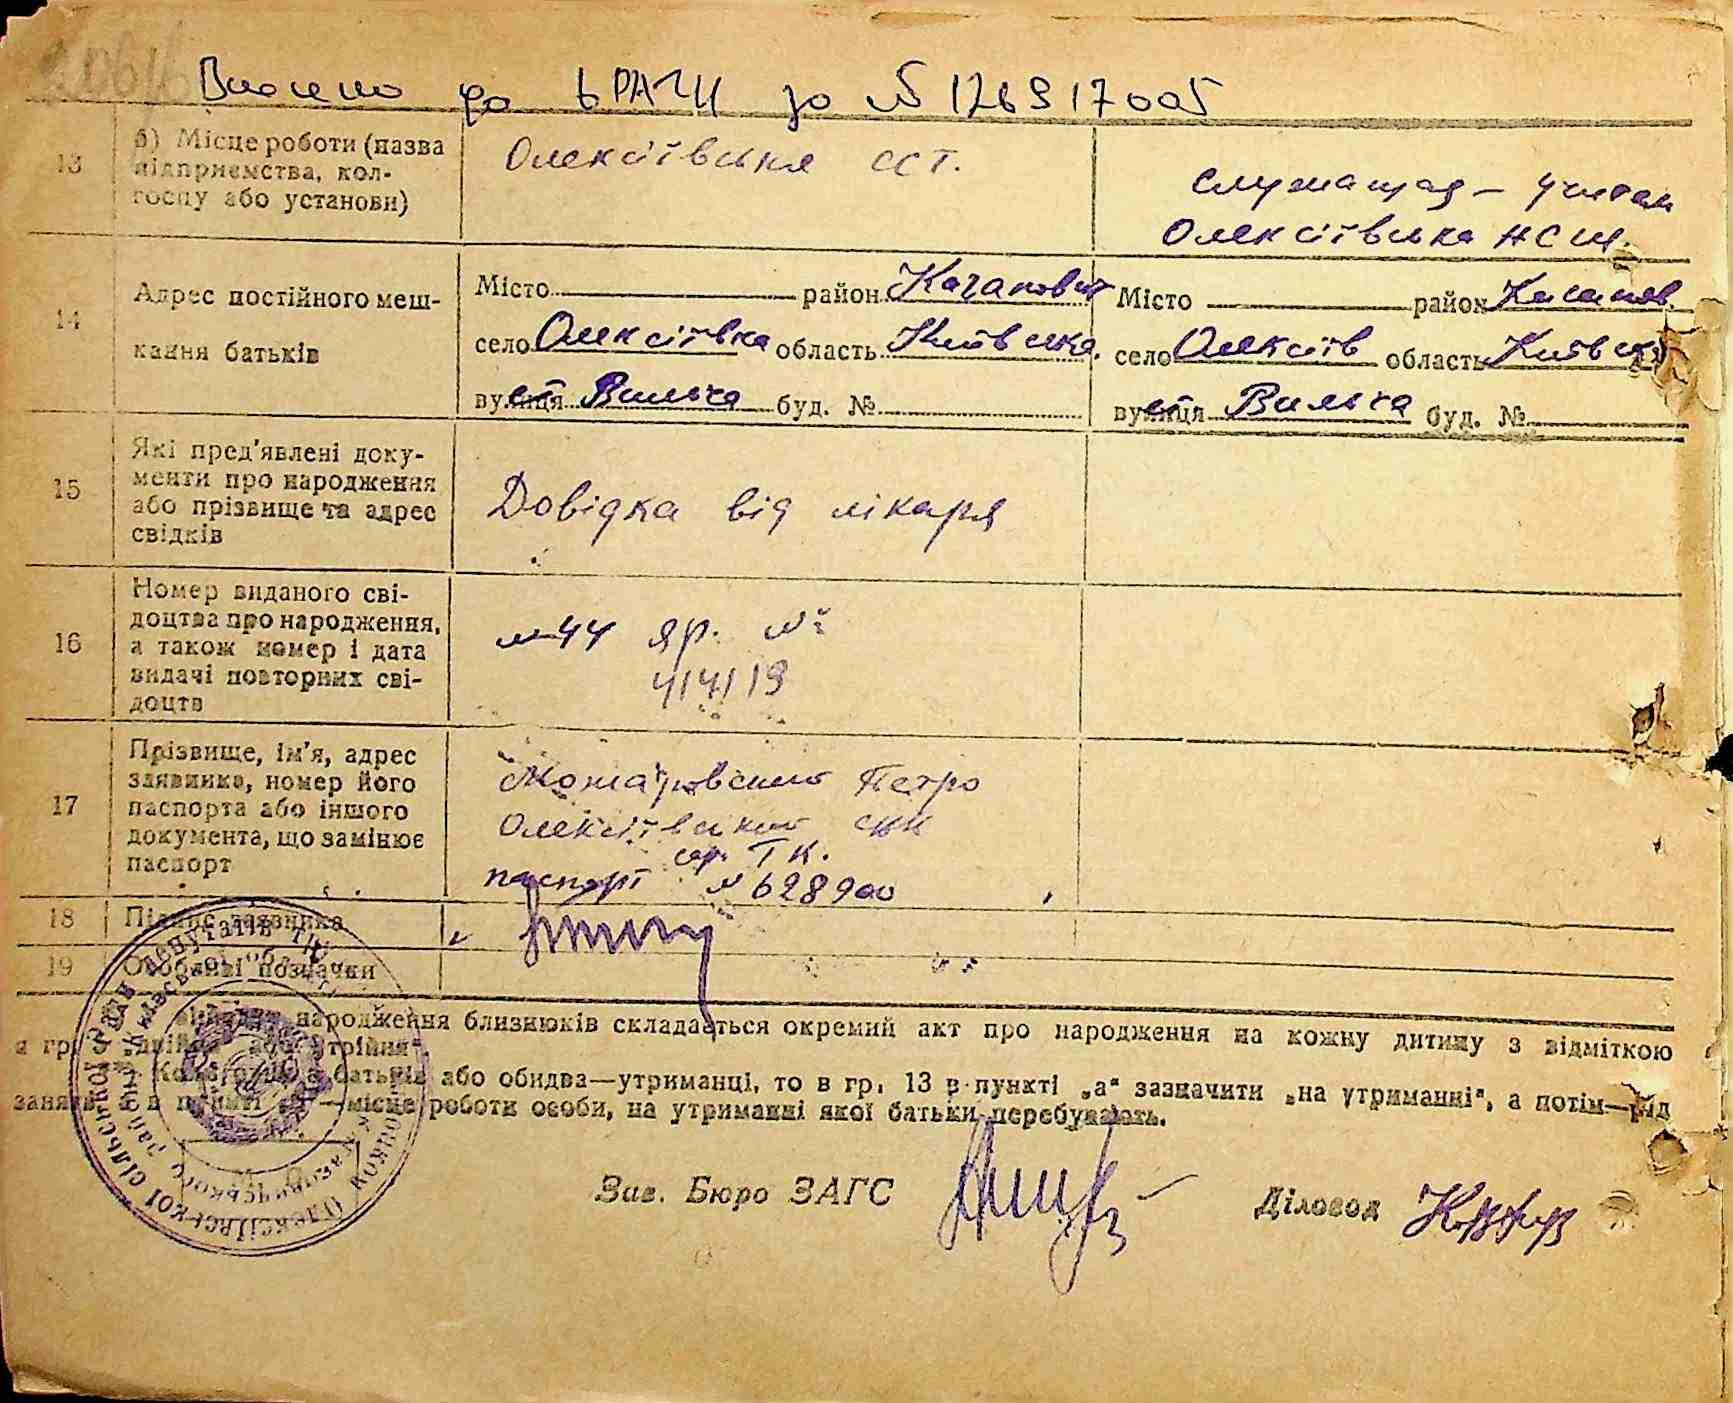 Внесено до ЬРАЦГ за № 126917005
13
б) Місце роботи (назва
підприємства, кол-
госпу або установи)
Олексіївська ССТ.
служащая – учител
Олексіївська НСШ.
14
Адрес постійного меш-
кання батьків
Місто район Кагановичт
село Олексіївка область Київська.
вулиця ст Вильча буд. №
Місто район Каганов.
село Олексіїв область Київська
вулиця ст Вильча буд. №
15
Які пред'явлені доку-
менти про народження
або прізвище та адрес
свідків
Довідка від лікаря
16
Номер виданого сві-
доцтва про народження,
а також номер і дата
видачі повторних сві-
доцтв
№ 44 яр. №
17
Прізвище, ім'я, адрес
заявника, номер його
паспорта або іншого
документа, що замінює
паспорт
Можаровський Петро
Олексіївської
сер. ТК.
паспорт № 628900
18
Підпис заявника
19
Особливі позначки
народження близнюків складається окремий акт про народження на кожну дитину з відміткою
в гр. „двійня або „трійня".
батьків або обидва—утриманці, то в гр. 13 в пункті „а" зазначити „на утриманні", а потім—рід
занять, в пункті —місце роботи особи, на утриманні якої батьки перебувають.
Зав. Бюро ЗАГС
Діловод